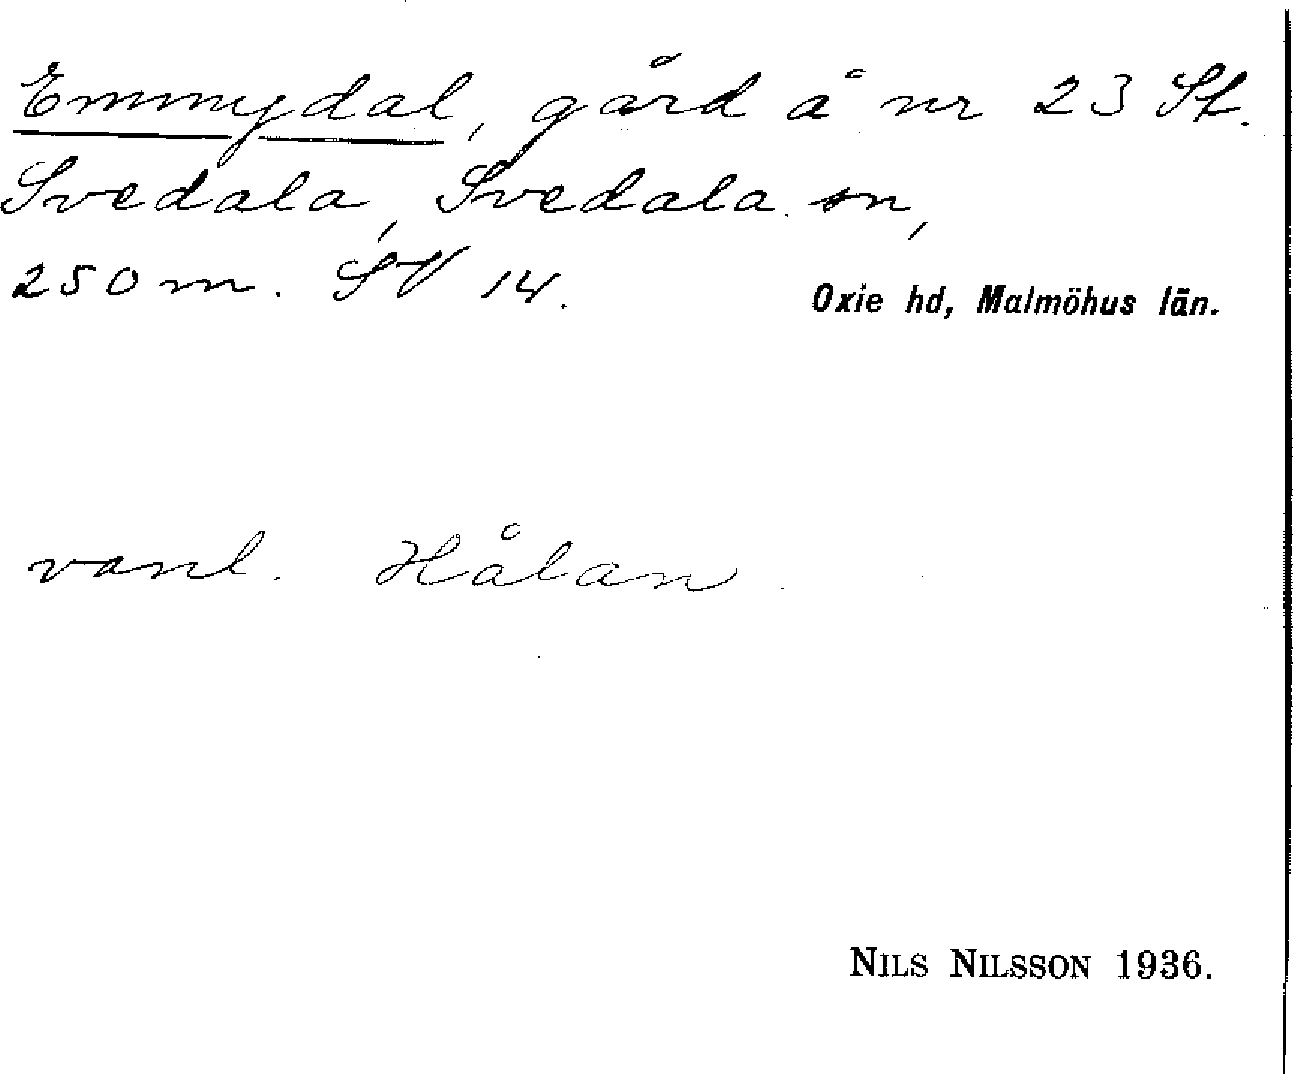 Emmydal, gård å nr 23 St.
Svedala, Svedala sn,
250 m. SV 14.
Oxie hd, Malmöhus län.
vanl. Hålan.
NILS NILSSON 1936.